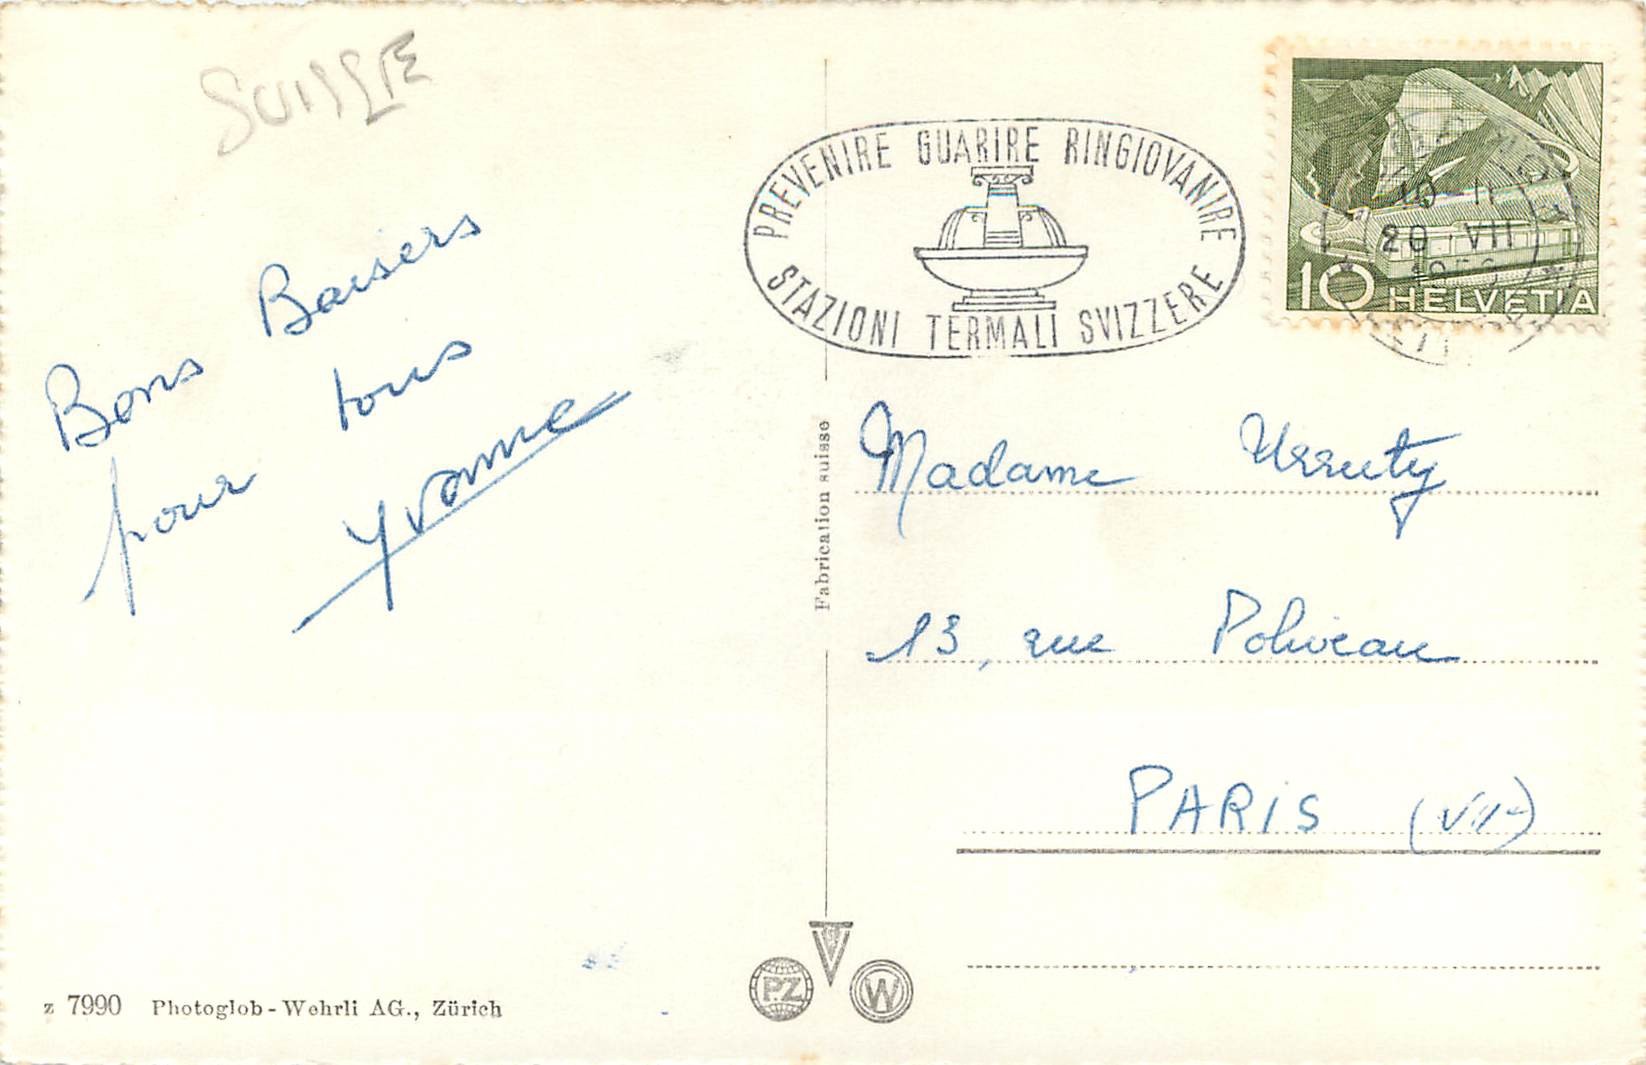 SUISSE
Bons Baisers
pour tous
Yvonne
PREVENIRE GUARIRE RINGIOVANIRE
STAZIONI TERMALI SVIZZERE
10-11
20 VII
10 HELVETIA
Fabrication suisse
Madame Urruty
13, rue Poliveau
PARIS (VII
PZ
W
z 7990 Photoglob-Wehrli AG., Zürich